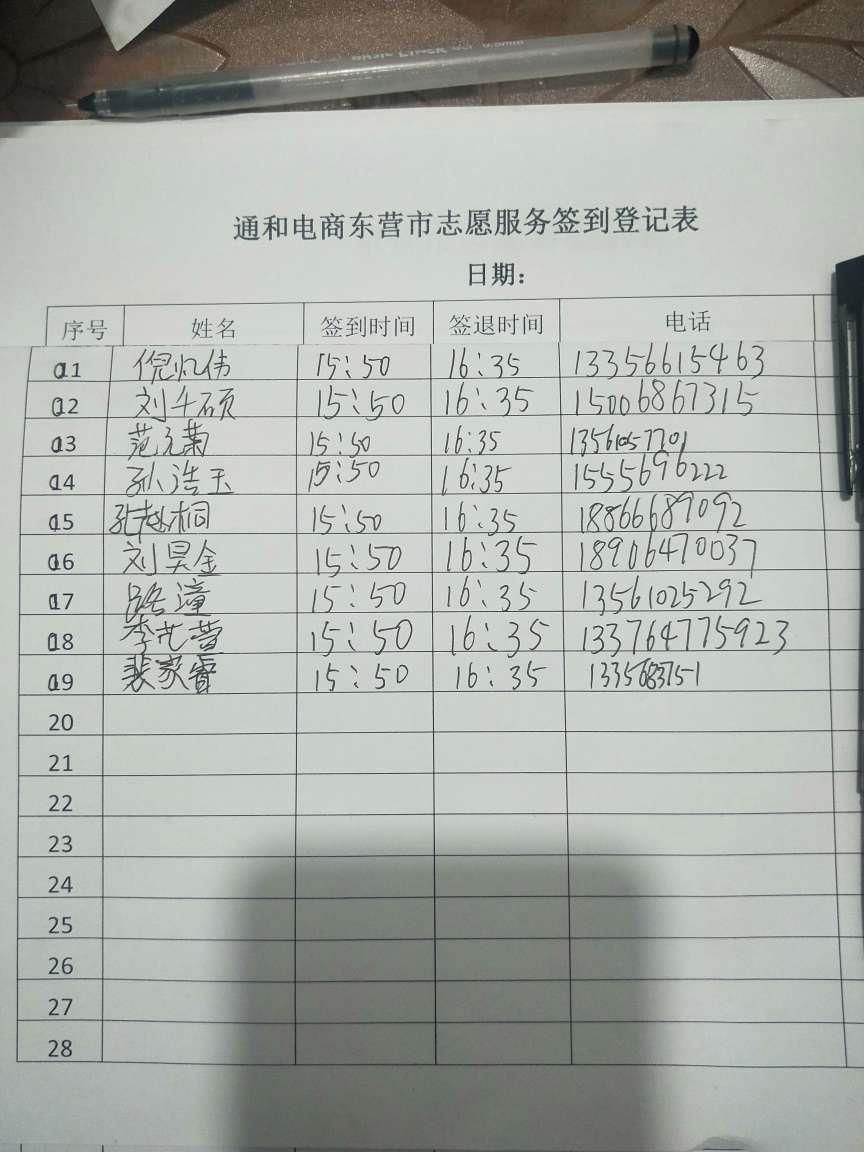 通和电商东营市志愿服务签到登记表
日期：
序号 姓名 签到时间 签退时间 电话
01 倪 伟 15:50 16:35 13356615463
02 刘千硕 15:50 16:35 15006867315
03 范元菊 15:50 16:35 13561057701
04 孙浩玉 15:50 16:35 1555696222
05 孔 桐 15:50 16:35 18866689092
06 刘昊金 15:50 16:35 18906470037
07 路潼 15:50 16:35 13561025292
08 李艺萱 15:50 16:35 133764775923
09 裴家睿 15:50 16:35
20
21
22
23
24
25
26
27
28